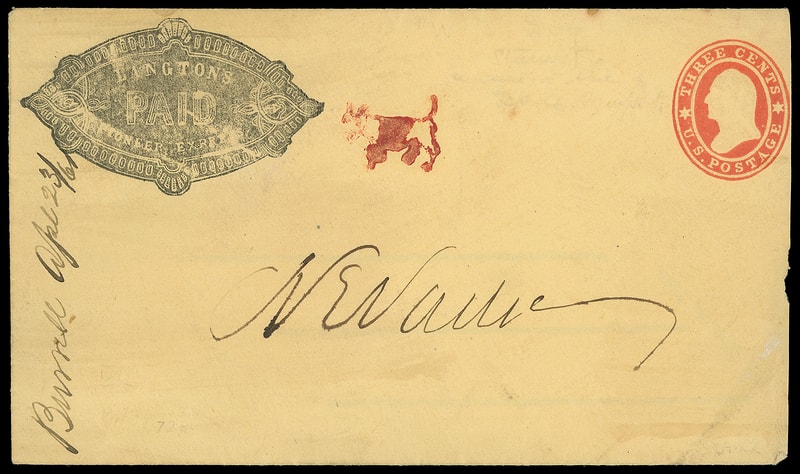 LANGTON'S
PAID
PIONEER. EXPRESS
THREE CENTS
U.S. POSTAGE
NEVada
Burrell Apl 23/61